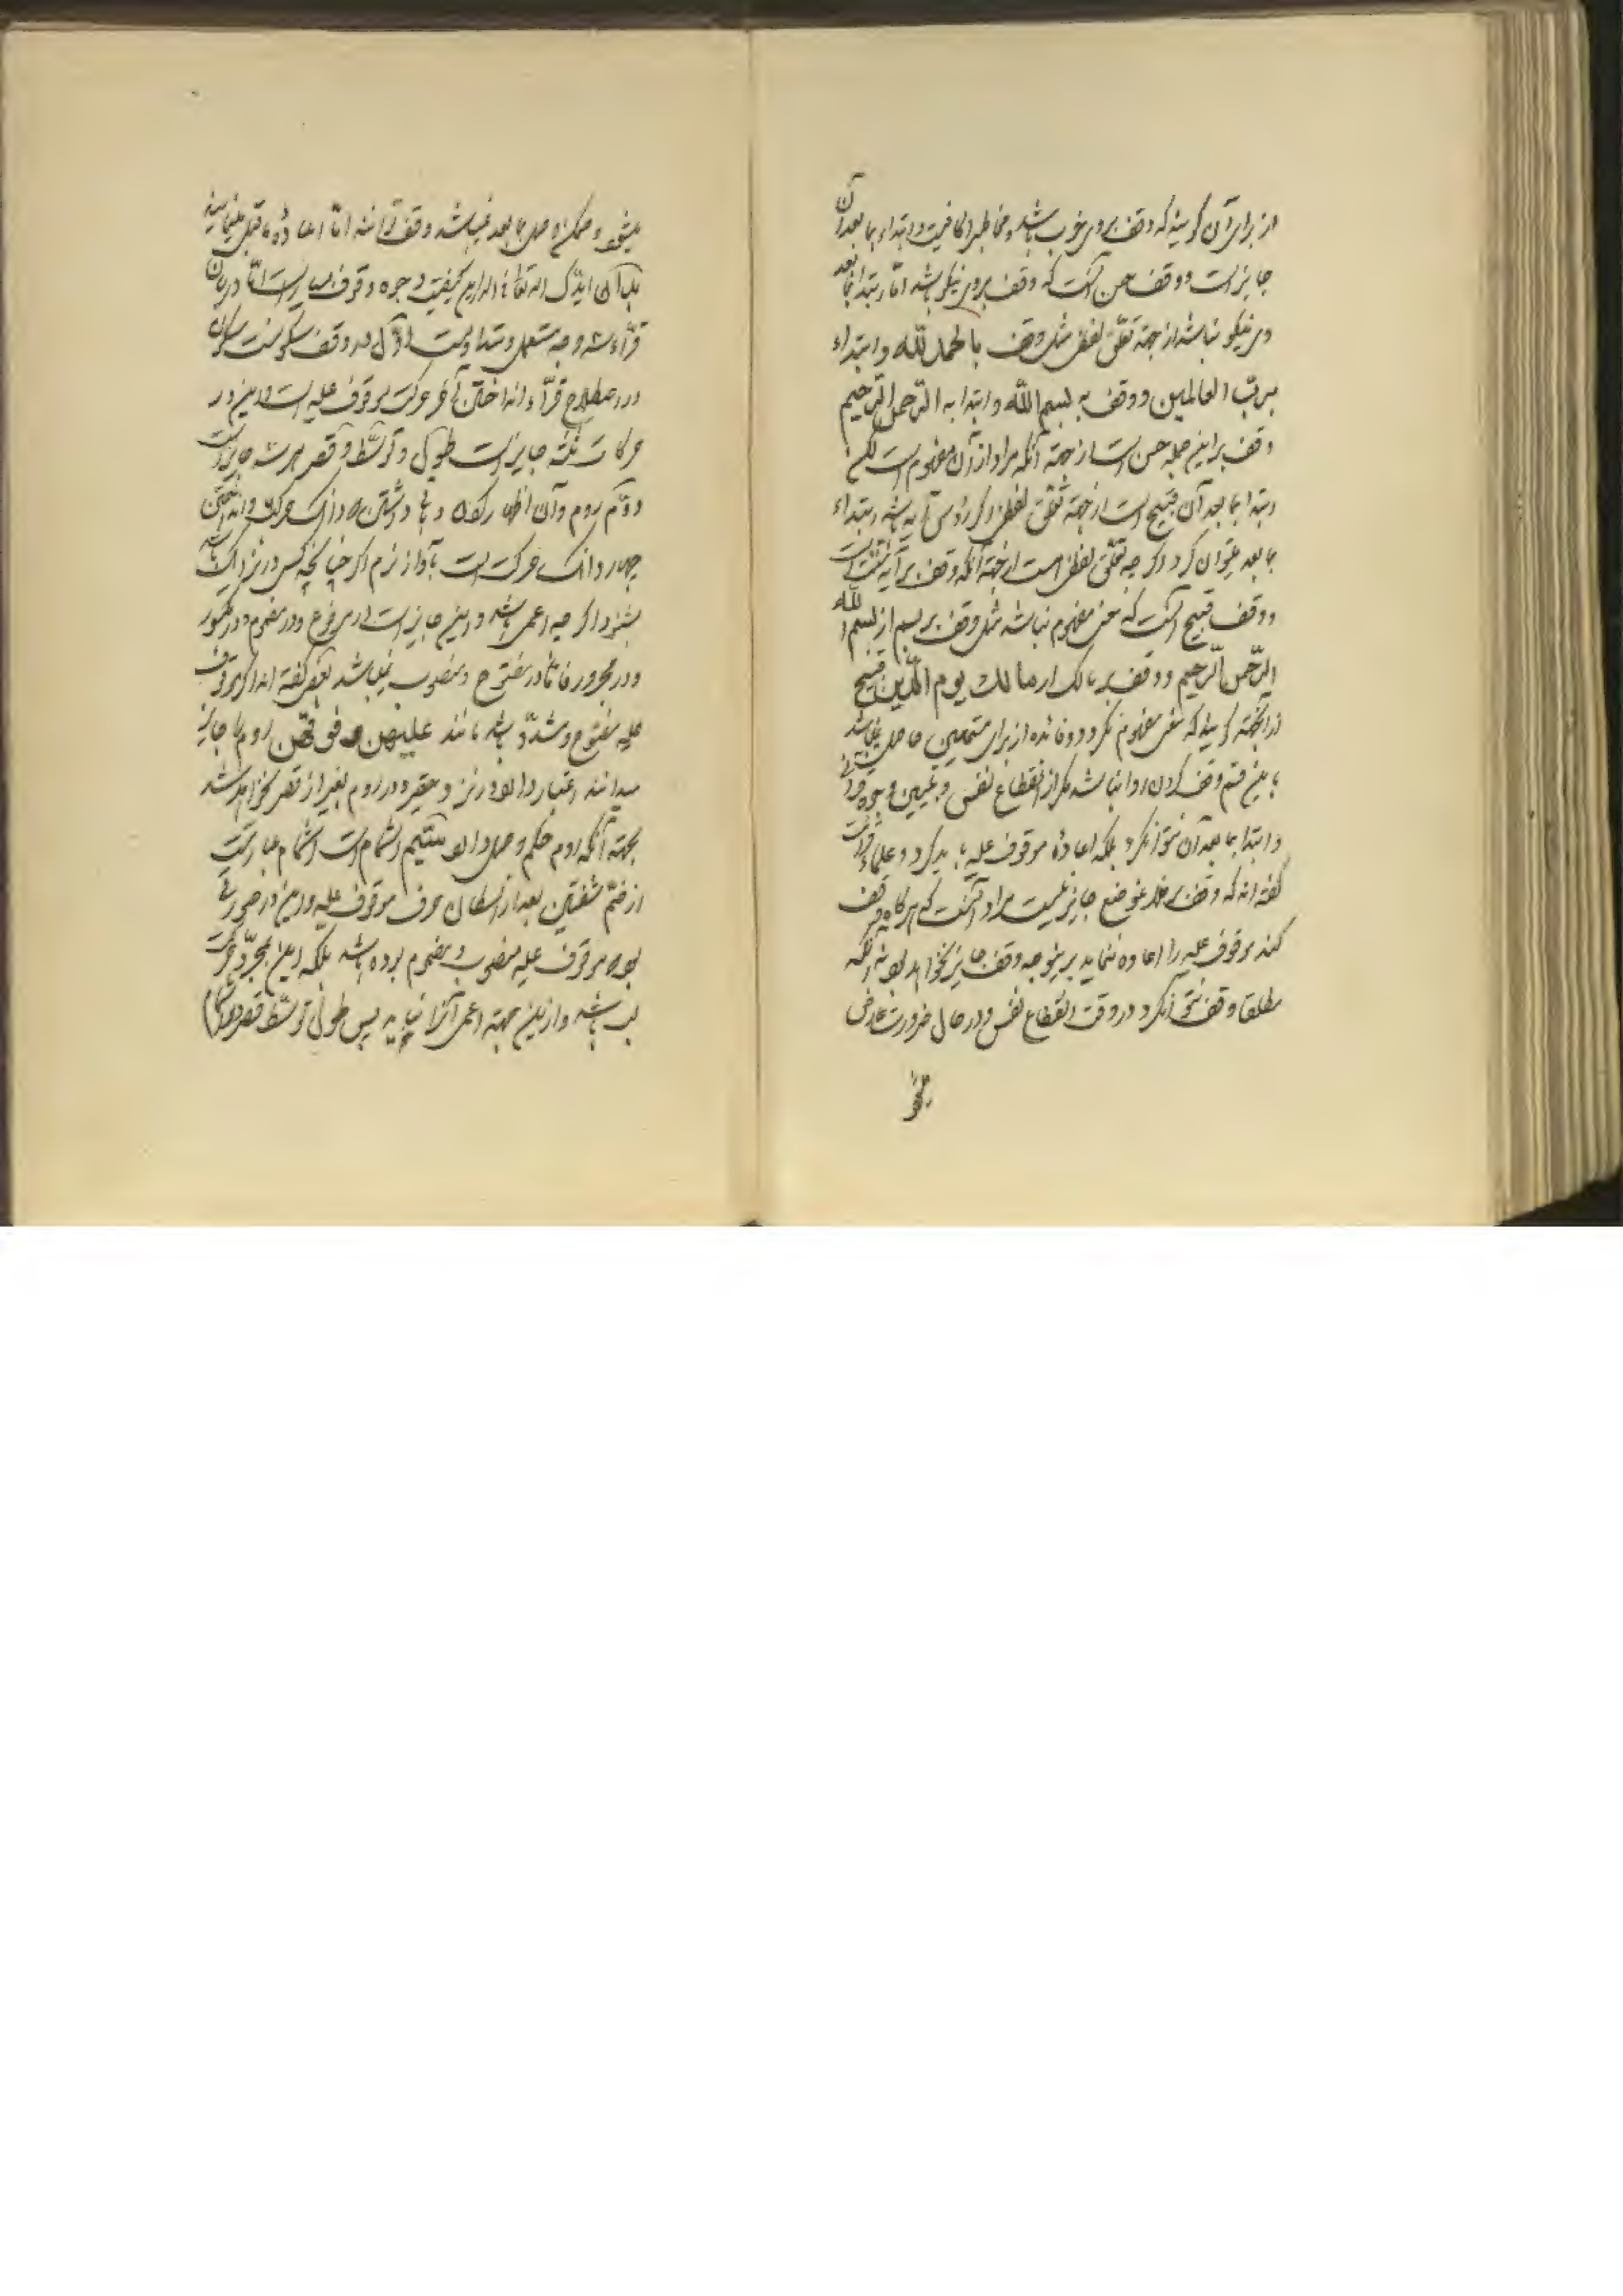 از برای آن گویند که وقف بر وی خوب باشد و مخاطب را کافیست و ابتداء بما بعد آن
جایز است و وقف حسن آنست که وقف بر وی نیکو باشد امّا ابتدا بما بعد
وی نیکو نباشد از جهة تعلّق لفظی مثل وقف بالحمد للّه و ابتداء
بربّ العالمین و وقف به بسم اللّه و ابتدا به الرّحمن الرّحیم
وقف بر این جمله حسن است از جهة آنکه مراد از آن مفهوم است لکن
ابتدا بما بعد آن قبیح است از جهة تعلّق لفظی و اگر رؤس آیه باشد ابتداء
بما بعد میتوان کرد اگر چه تعلّق لفظی است از جهة آنکه وقف بر آیه سنّت است
و وقف قبیح آنست که معنی مفهوم نباشد مثل وقف بر بسم از بسم اللّه
الرّحمن الرّحیم و وقف بر مالک از مالک یوم الدّین قبیح
از آنجهة گویند که معنی مفهوم نگردد و فائده از برای مستمعین حاصل نمیباشد
باین قسم وقف کردن روا نباشد مگر از انقطاع نفس و تبیین وجوه قرائت
و ابتدا بما بعد آن نتوان کرد بلکه اعادۀ موقوف علیه باید کرد و علماء قرائت
گفته اند که وقف بر فلان موضع جایز نیست مراد آنست که هر گاه وقف
کند موقوف علیه را اعاده ننماید بر اینوجه وقف جایز نخواهد بود نه آنکه
مطلقا وقف نتوان کرد در وقت انقطاع نفس و در حال ضرورت عارض
میشود و ممکن وصل بما بعد نمیباشد وقف توانند امّا اعادۀ ما قبل مینمایند
بدان ایّدک اللّه تعالی فی الدارین کیفیت وجوه وقوف بسیار است امّا در میان
قرّاء سه وجه مستعمل و متداولست اوّل وقف بسکونست سکون
در اصطلاح قرّاء انداختن آخر حرکت موقوف علیه است و این در
حرکات ثلثه جایز است طول و توسّط و قصر هر سه جایز است
دوّم روم و آن اظهار کردن و باقی داشتن دو دانک حرکت و انداختن
چهار دانک حرکت است بآواز نرم اگر چنانچه کس در نزدیک باشد
بشنود اگر چه اعمی باشد و این جایز است در مرفوع و در مضموم و در مکسور
و در مجرور فامّا در مفتوح و منصوب نمیباشد بعضی گفته اند اگر موقوف
علیه مفتوح و مشدّد باشد مانند علیهن روم را جایز
میدانند اعتبار دارد و در روم بغیر از قصر نخواهد شد
بجهة آنکه روم حکم وصل دارد سیّم اشمام است اشمام عبارتست
از ضمّ شفتین بعد از اسکان حرف موقوف علیه و این در صورتی
بود موقوف علیه مضموم بوده باشد بلکه این مجرّد حرکت
لب باشد و از این جهة اعمی آنرا نیابد پس طول توسّط قصر